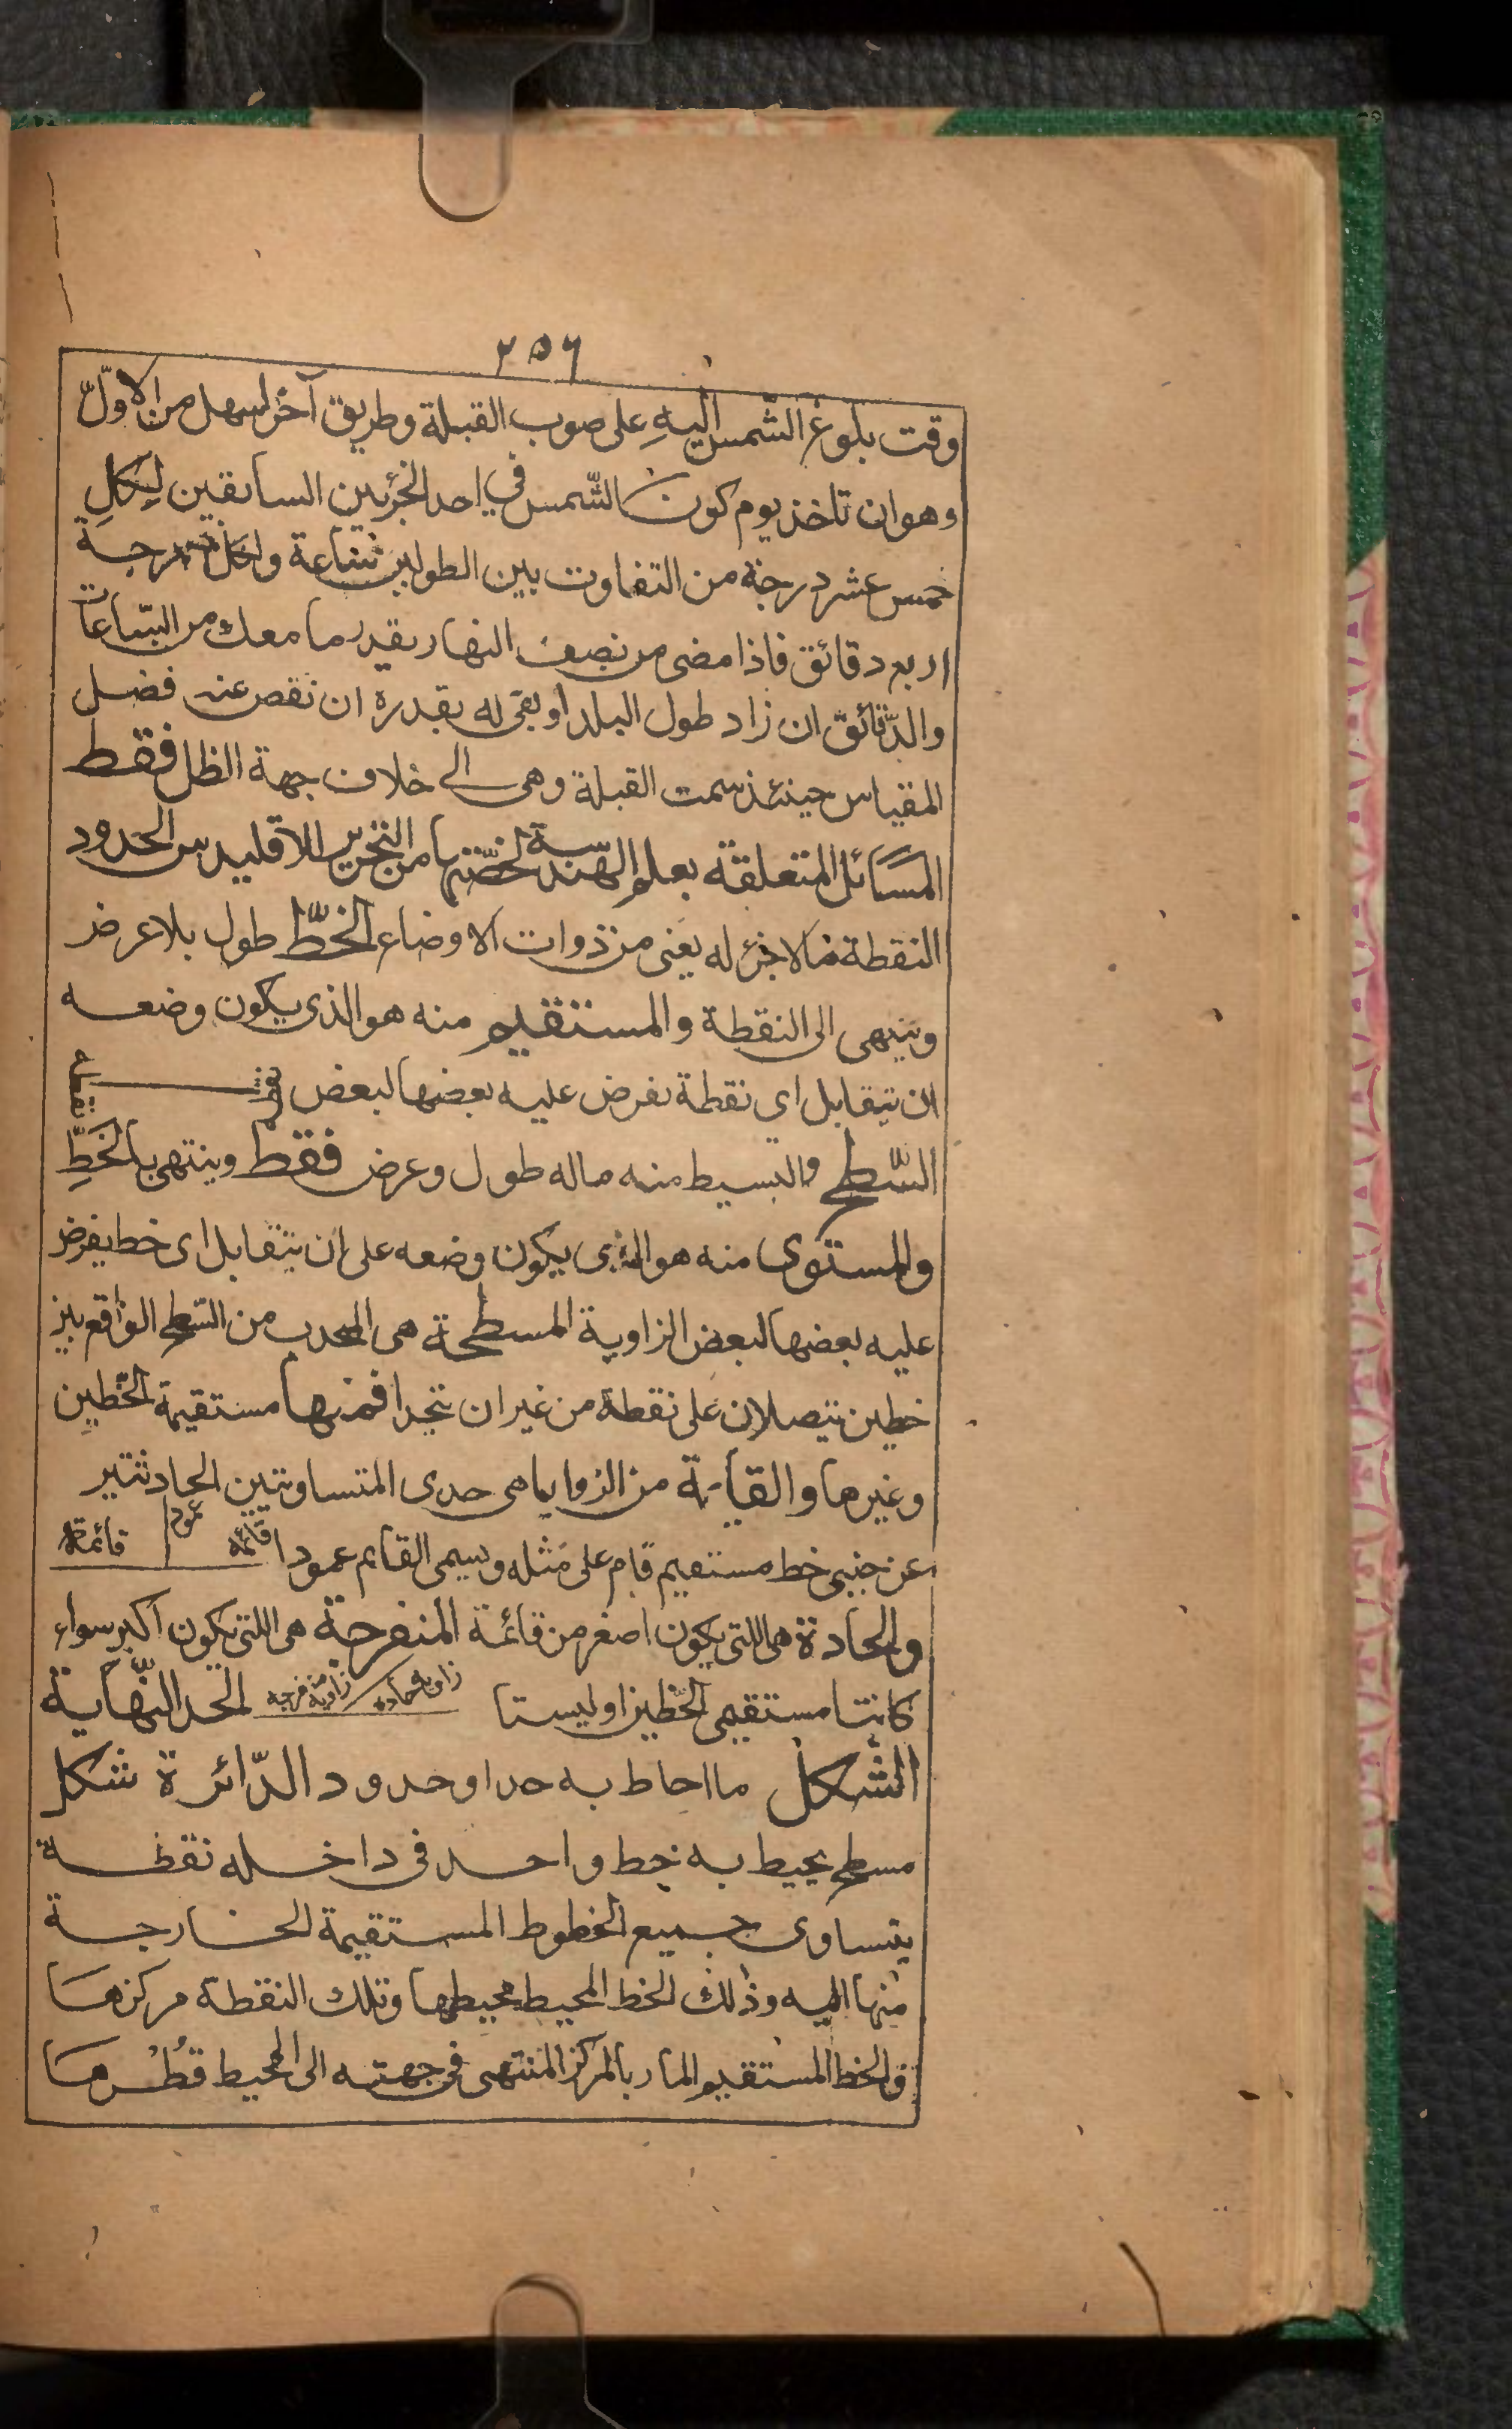 ٢٥٦
وقت بلوغ الشّمس اليهِ على صوب القبلة وطريق آخر اسهل من الاوّل
وهو ان تاخذ يوم كون الشّمس في احد الجزئين السابقين لِكلِ
خمس عشر درجة من التفاوت بين الطولين ساعة ولكل درجة
اربع دقائق فاذا مضى من نصف النهار بقدر ما معك من السّاعات
والدّقائق ان زاد طول البلد او بقى له بقدره ان نقص عنه فضل
المقياس حينئذ سمت القبلة وهى الى خلاف جهة الظل فقط
المسَائل المتعلقة بعلم الهندسة لخصّتها من التحرير الاقليدس الحدود
النقطة مالا جزء له يعنى من ذوات الاوضاع الخطّ طول بلا عرض
وينتهى الى النقطة والمستقيم منه هو الذى يكون وضعه
ان يتقابل اى نقطة تفرض عليه بعضها لبعض
السّطح والبسيط منه ماله طول وعرض فقط وينتهى بالخطِّ
والمستوى منه هو الذى يكون وضعه على ان يتقابل اى خط يفرض
عليه بعضها لبعض الزاوية المسطحة هى المحدب من السّطح الواقع بين
خطين يتصلان على نقطة من غير ان يتحدا فمنها مستقيمة الخّطين
وغيرها والقائمة من الزوايا هى احدى المتساويتين الحادثتين
عن جنبى خط مستقيم قام على مثله ويسمى القايم عمودا قائمة عمود قائمة
والحادة هى اللتى يكون اصغر من قائمة المنفرجة هى اللتى يكون اكبر سواء
كانتا مستقيمى الخّطين او ليستا زاوية حادة زاوية منفرجه الحد النّهاية
الشكل ما احاط به حد او حدود الدّائرة شكل
مسطح يحيط به خط واحد فى داخله نقطة
يتساوى جميع الخطوط المستقيمة الخارجة
منها اليه وذلك الخط المحيط محيطها وتلك النقطة مركزهَا
والخط المستقيم المار بالمركز المنتهى فى جهته الى المحيط قُطْرهَا